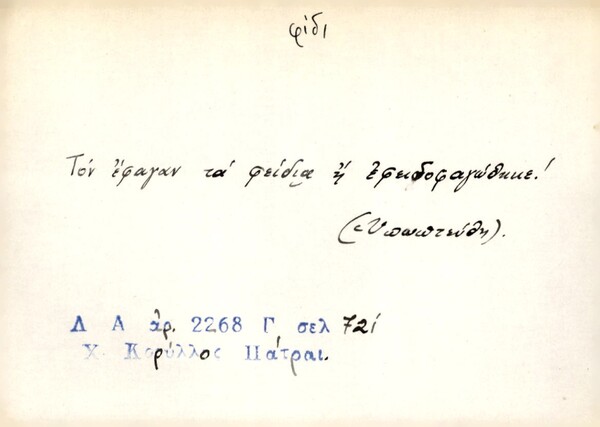 φίδι
Τόν ἔφαγαν τά φείδια ἤ ἐφειδοφαγώθηκε!
(Ὑπωπτεύθη).
Λ Α ἀρ. 2268 Γ σελ 721
Χ. Κορύλλος Πάτραι.